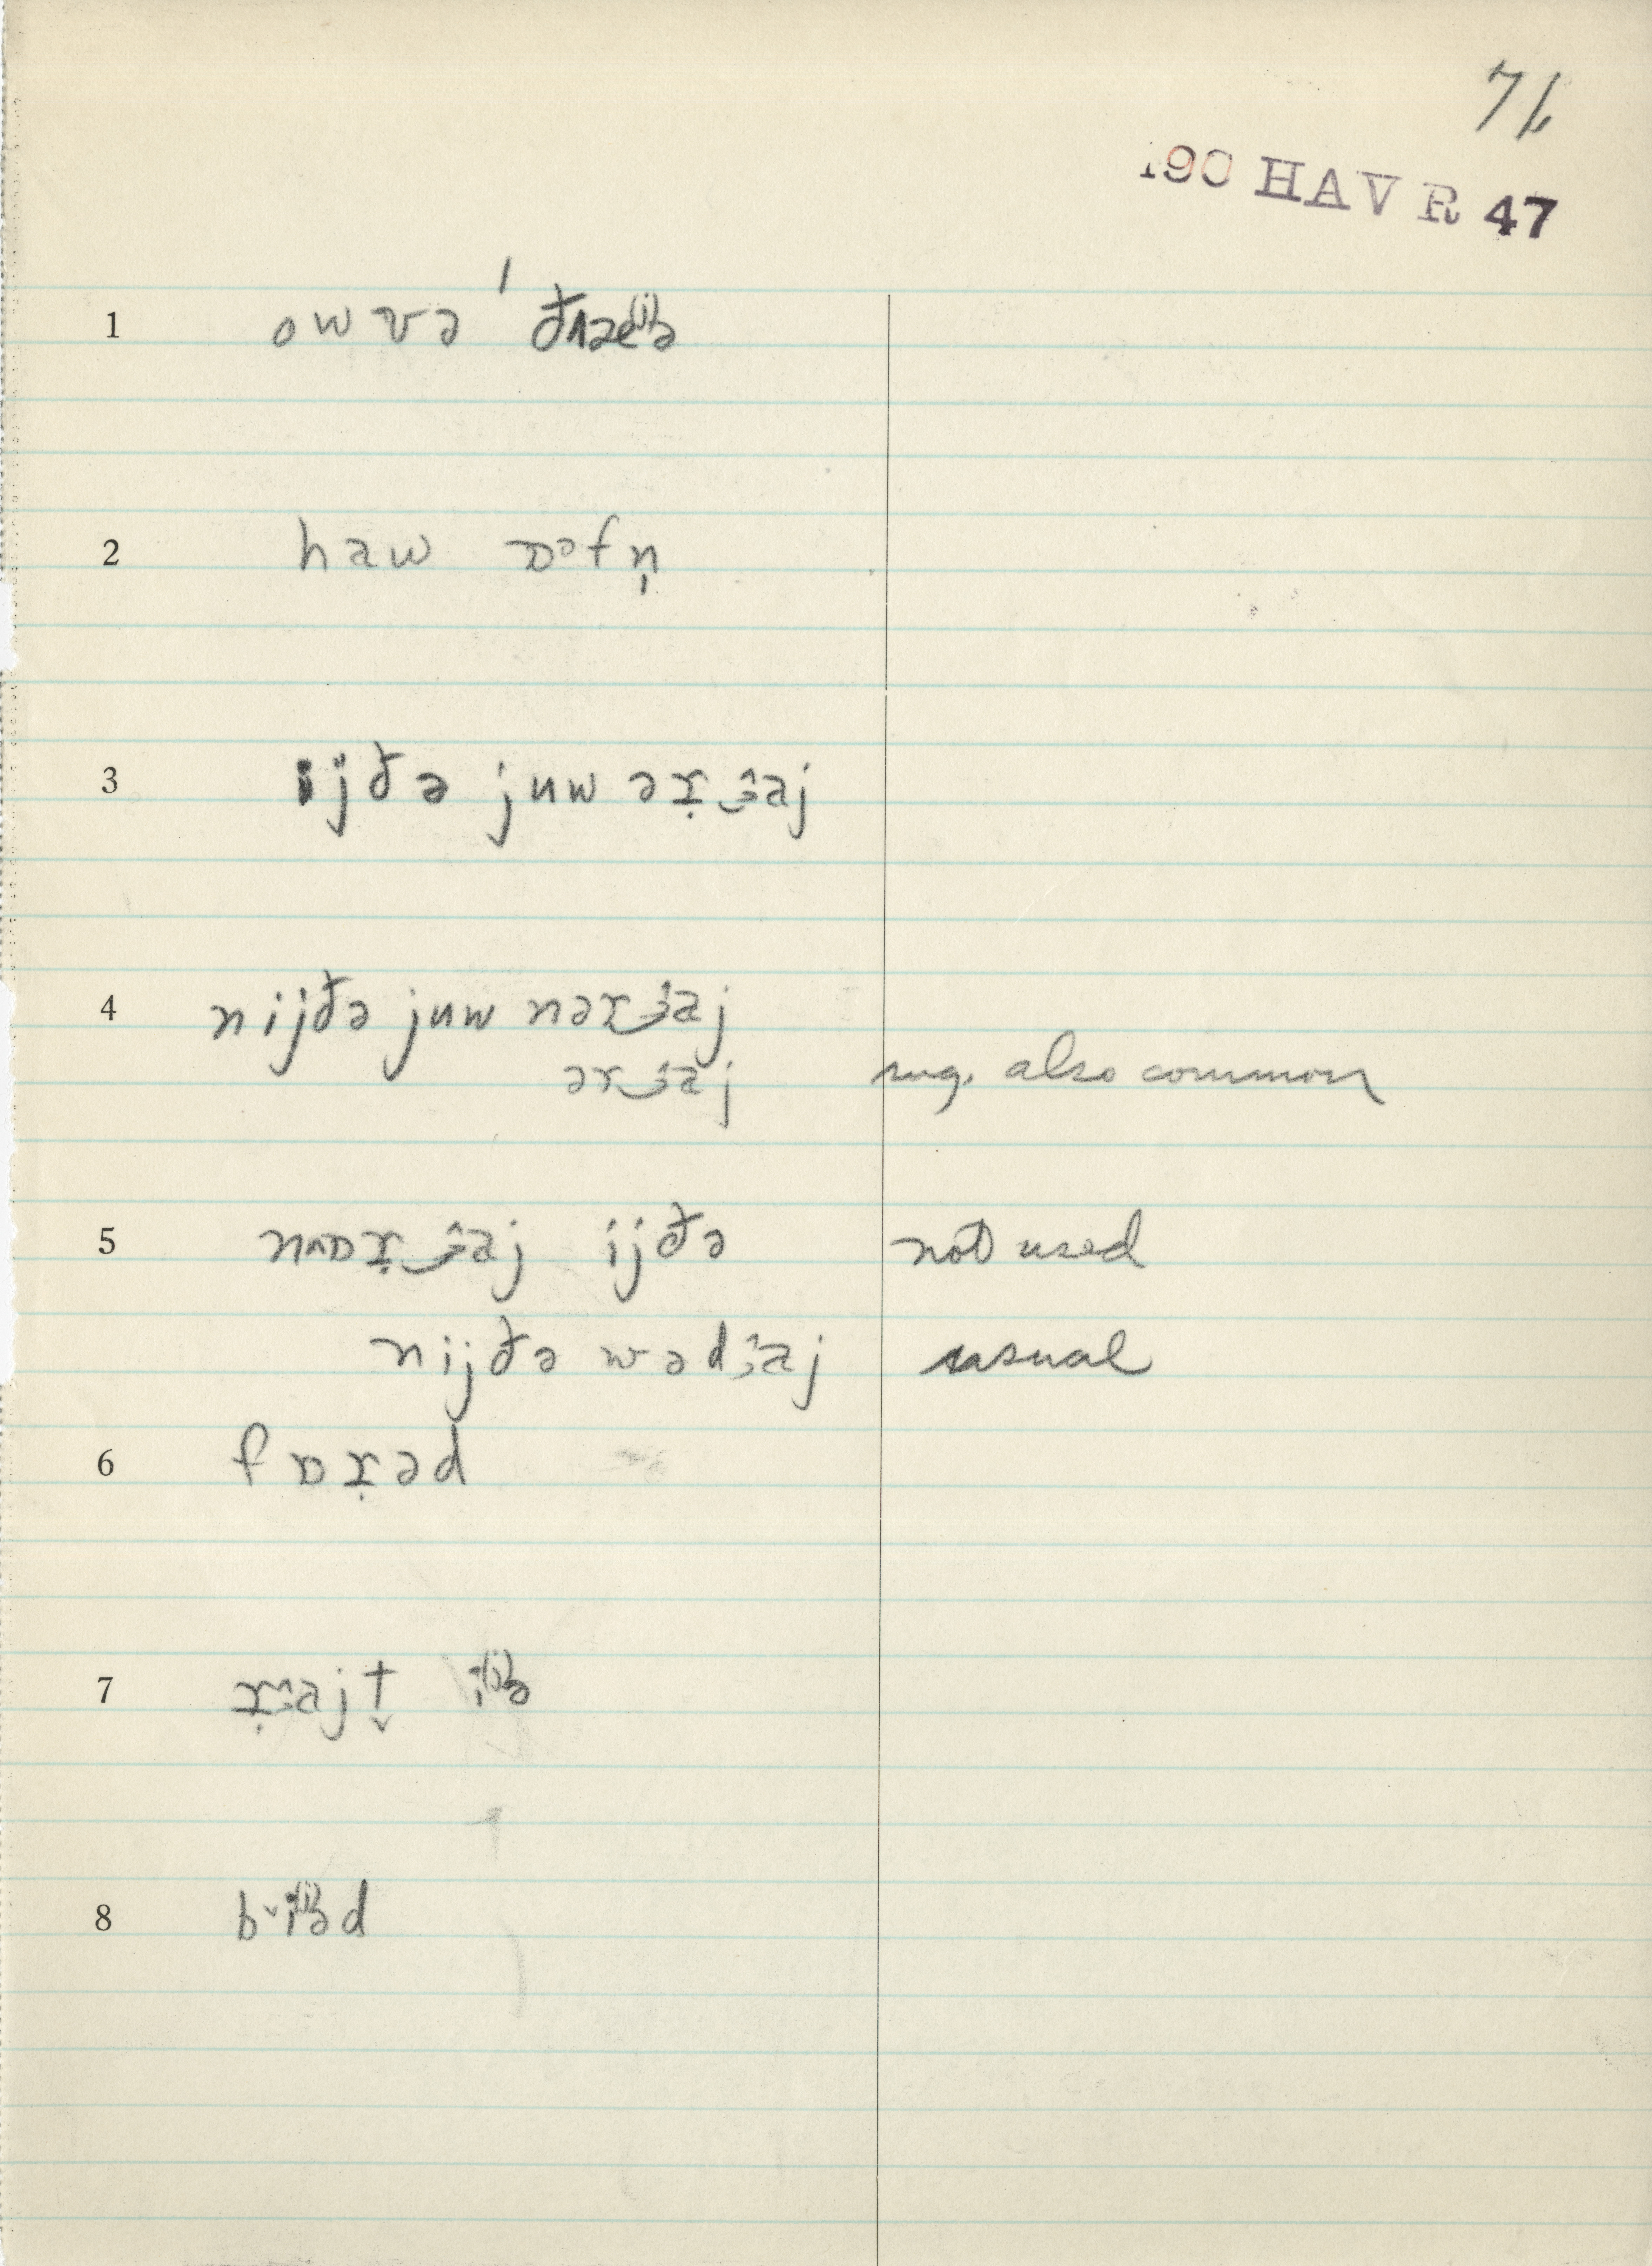 76
190 HAV R 47
1 owvə ˈðʌæe⁽ʲ⁾ə
2 haw ɒᵊfn̩
3 ijðə juw əɤ̣ɜaj
4 nijðə juw nəɤɜaj
əɤɜaj sug. also common
5 nʌɒɤ̣ɜaj ijðə not used
nijðə wədɜaj usual
6 fɒɤ̣əd
7 ɤ̣ɜajt̬ i⁽ʲ⁾ə
8 b˅i⁽ʲ⁾əd